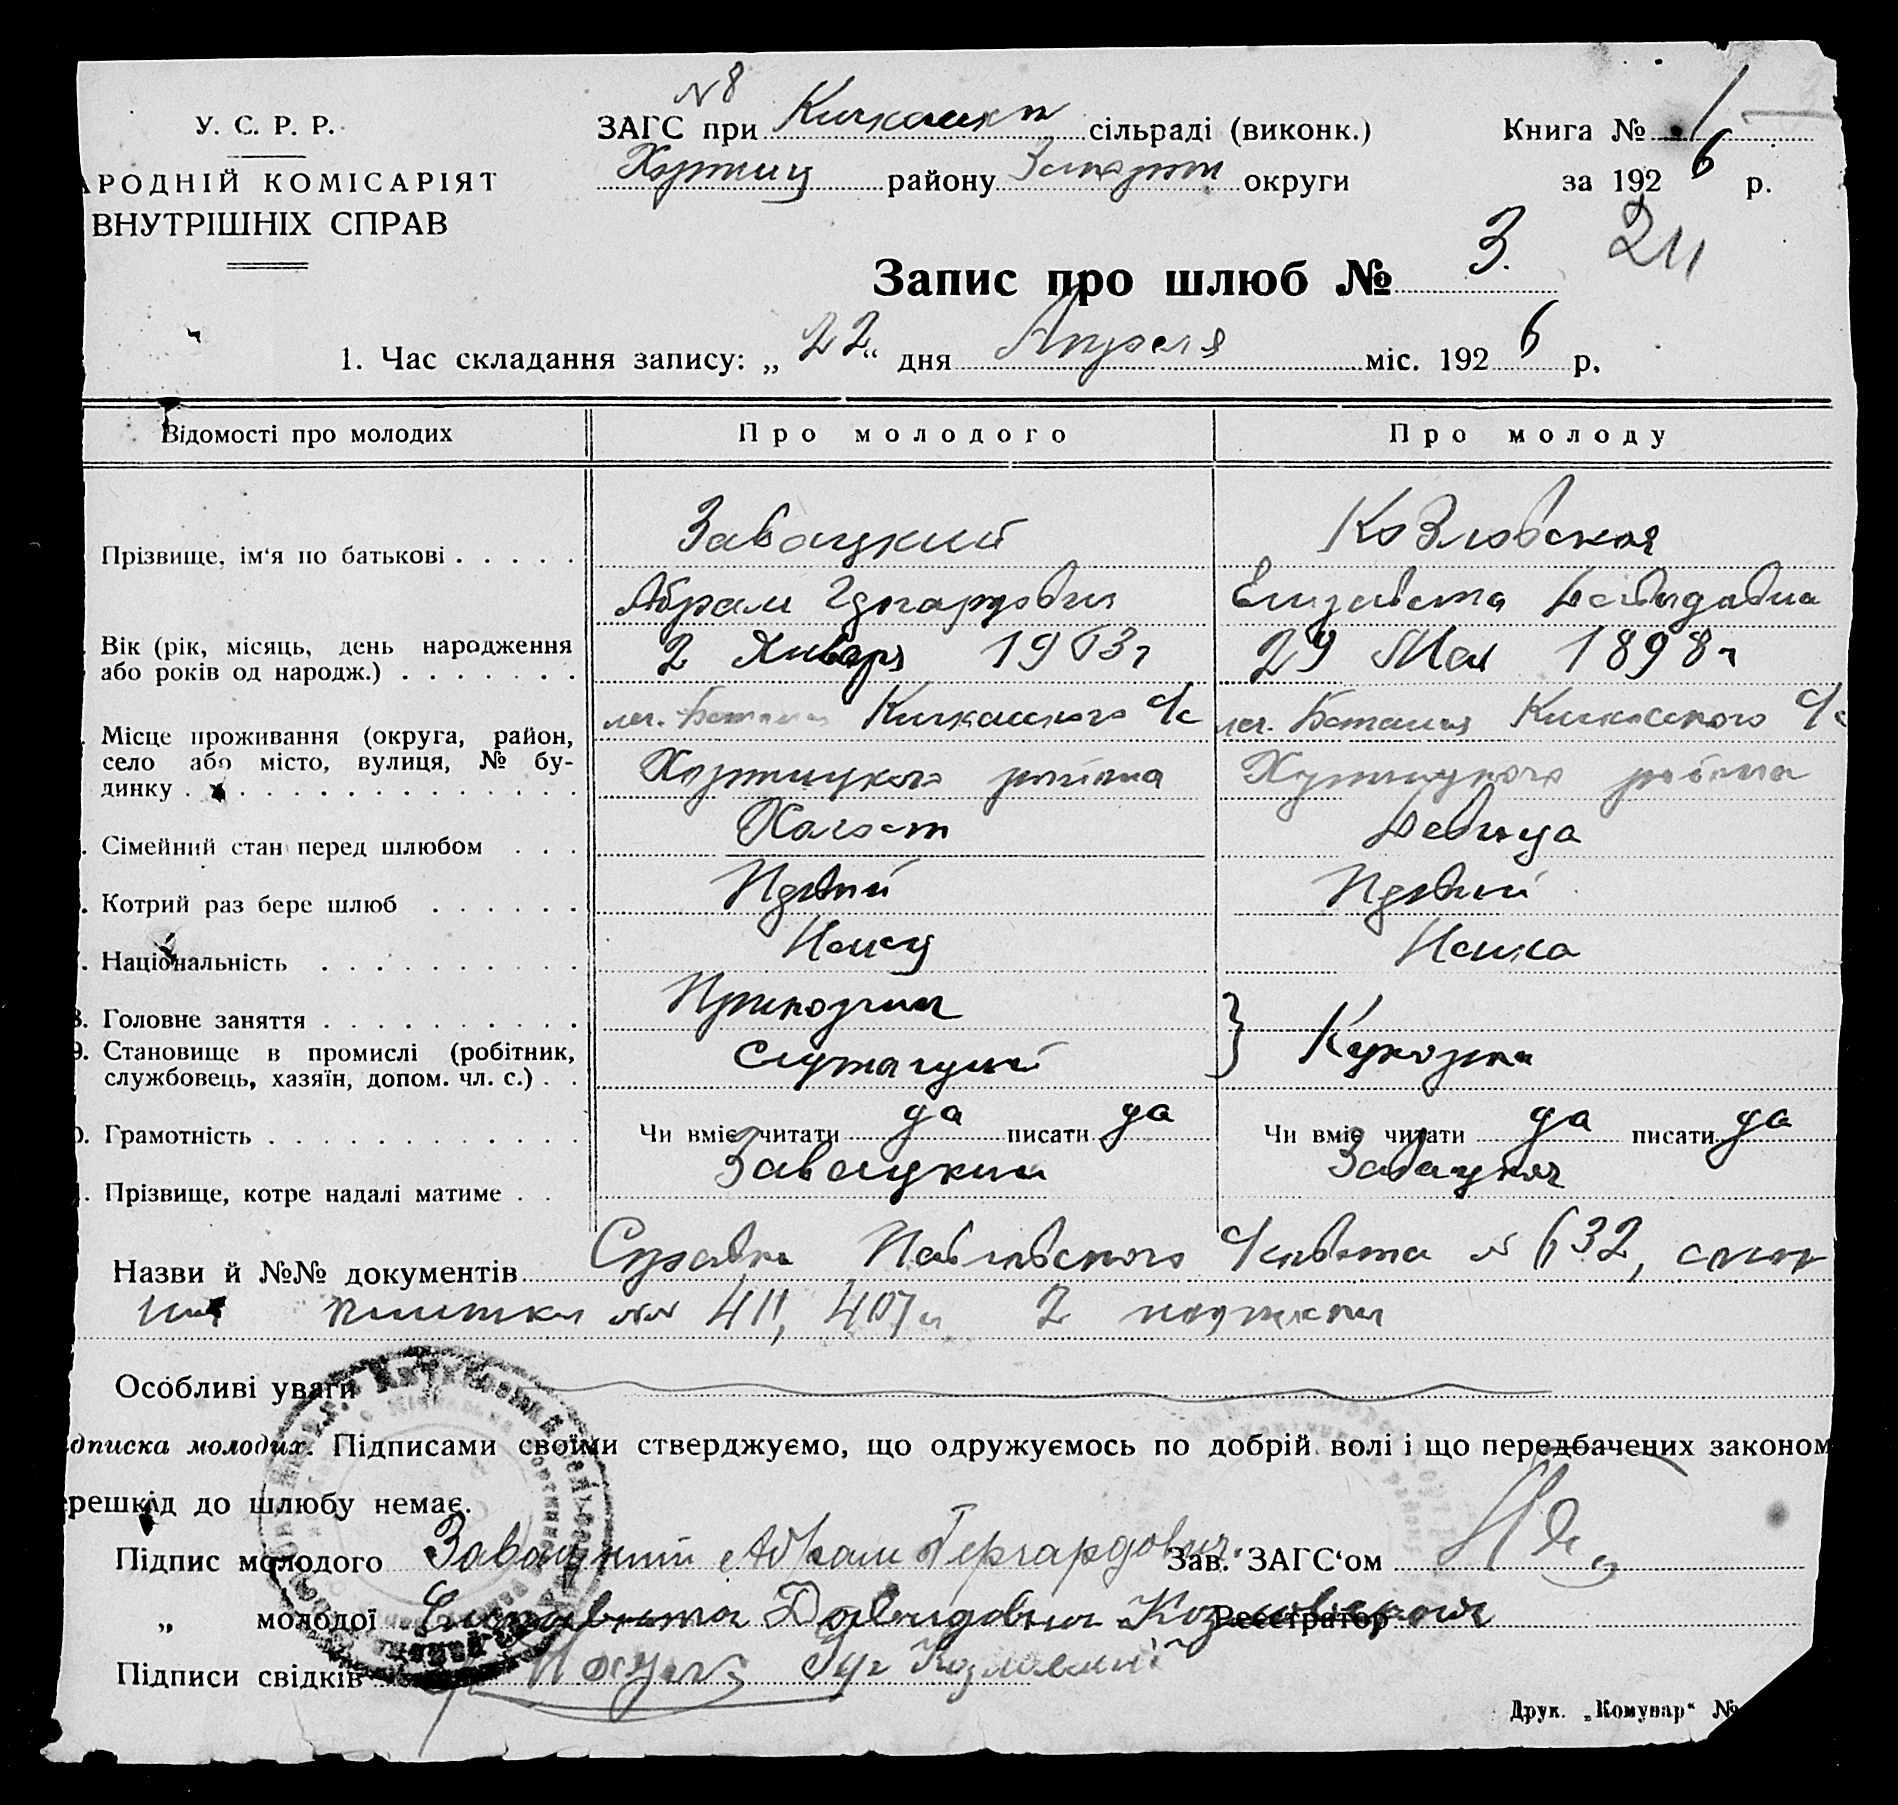 № 8
У. С. Р. Р.
ЗАГС при Кичкасск сільраді (виконк.) Книга № 1
АРОДНІЙ КОМІСАРІЯТ
Хортиц району Запорож округи за 1926 р.
ВНУТРІШНІХ СПРАВ
Запис про шлюб № 3. 24
1. Час складання запису: „22“ дня Апреля міс. 1926 р.
Відомості про молодих Про молодого Про молоду
Завацкий Козловская
Прізвище, ім‘я по батькові
Абрам Гергардович Елизавета Давидовна
Вік (рік, місяць, день народження 2 Января 1903 г 29 Мая 1898 г
або років од народж.)
Кичкасского с/с Кичкасского с/с
Місце проживання (округа, район,
село або місто, вулиця, № бу- Хортицкого района Хортицкого района
динку
Сімейний стан перед шлюбом Холост Девица
Котрий раз бере шлюб Первый Первый
7. Національність Немец Немка
8. Головне заняття
9. Становище в промислі (робітник, Служащий Кухарка
службовець, хазяїн, допом. чл. с.)
0. Грамотність Чи вміє читати да писати да Чи вміє читати да писати да
Прізвище, котре надалі матиме Завацкий Завацкая
Назви й №№ документів Справка Павловского с/совета № 632,
№№ 411, 407 и 2 подписки
Особливі уваги
дписка молодих. Підписами своїми стверджуємо, що одружуємось по добрій волі і що передбачених законом
ерешкід до шлюбу немає.
Підпис молодого Завацкий Абрам Гергардович. Зав. ЗАГС‘ом
„ молодої Елизавета Давидовна Козловская Реєстратор
Підписи свідків Козловский
Друк. „Комунар“ №